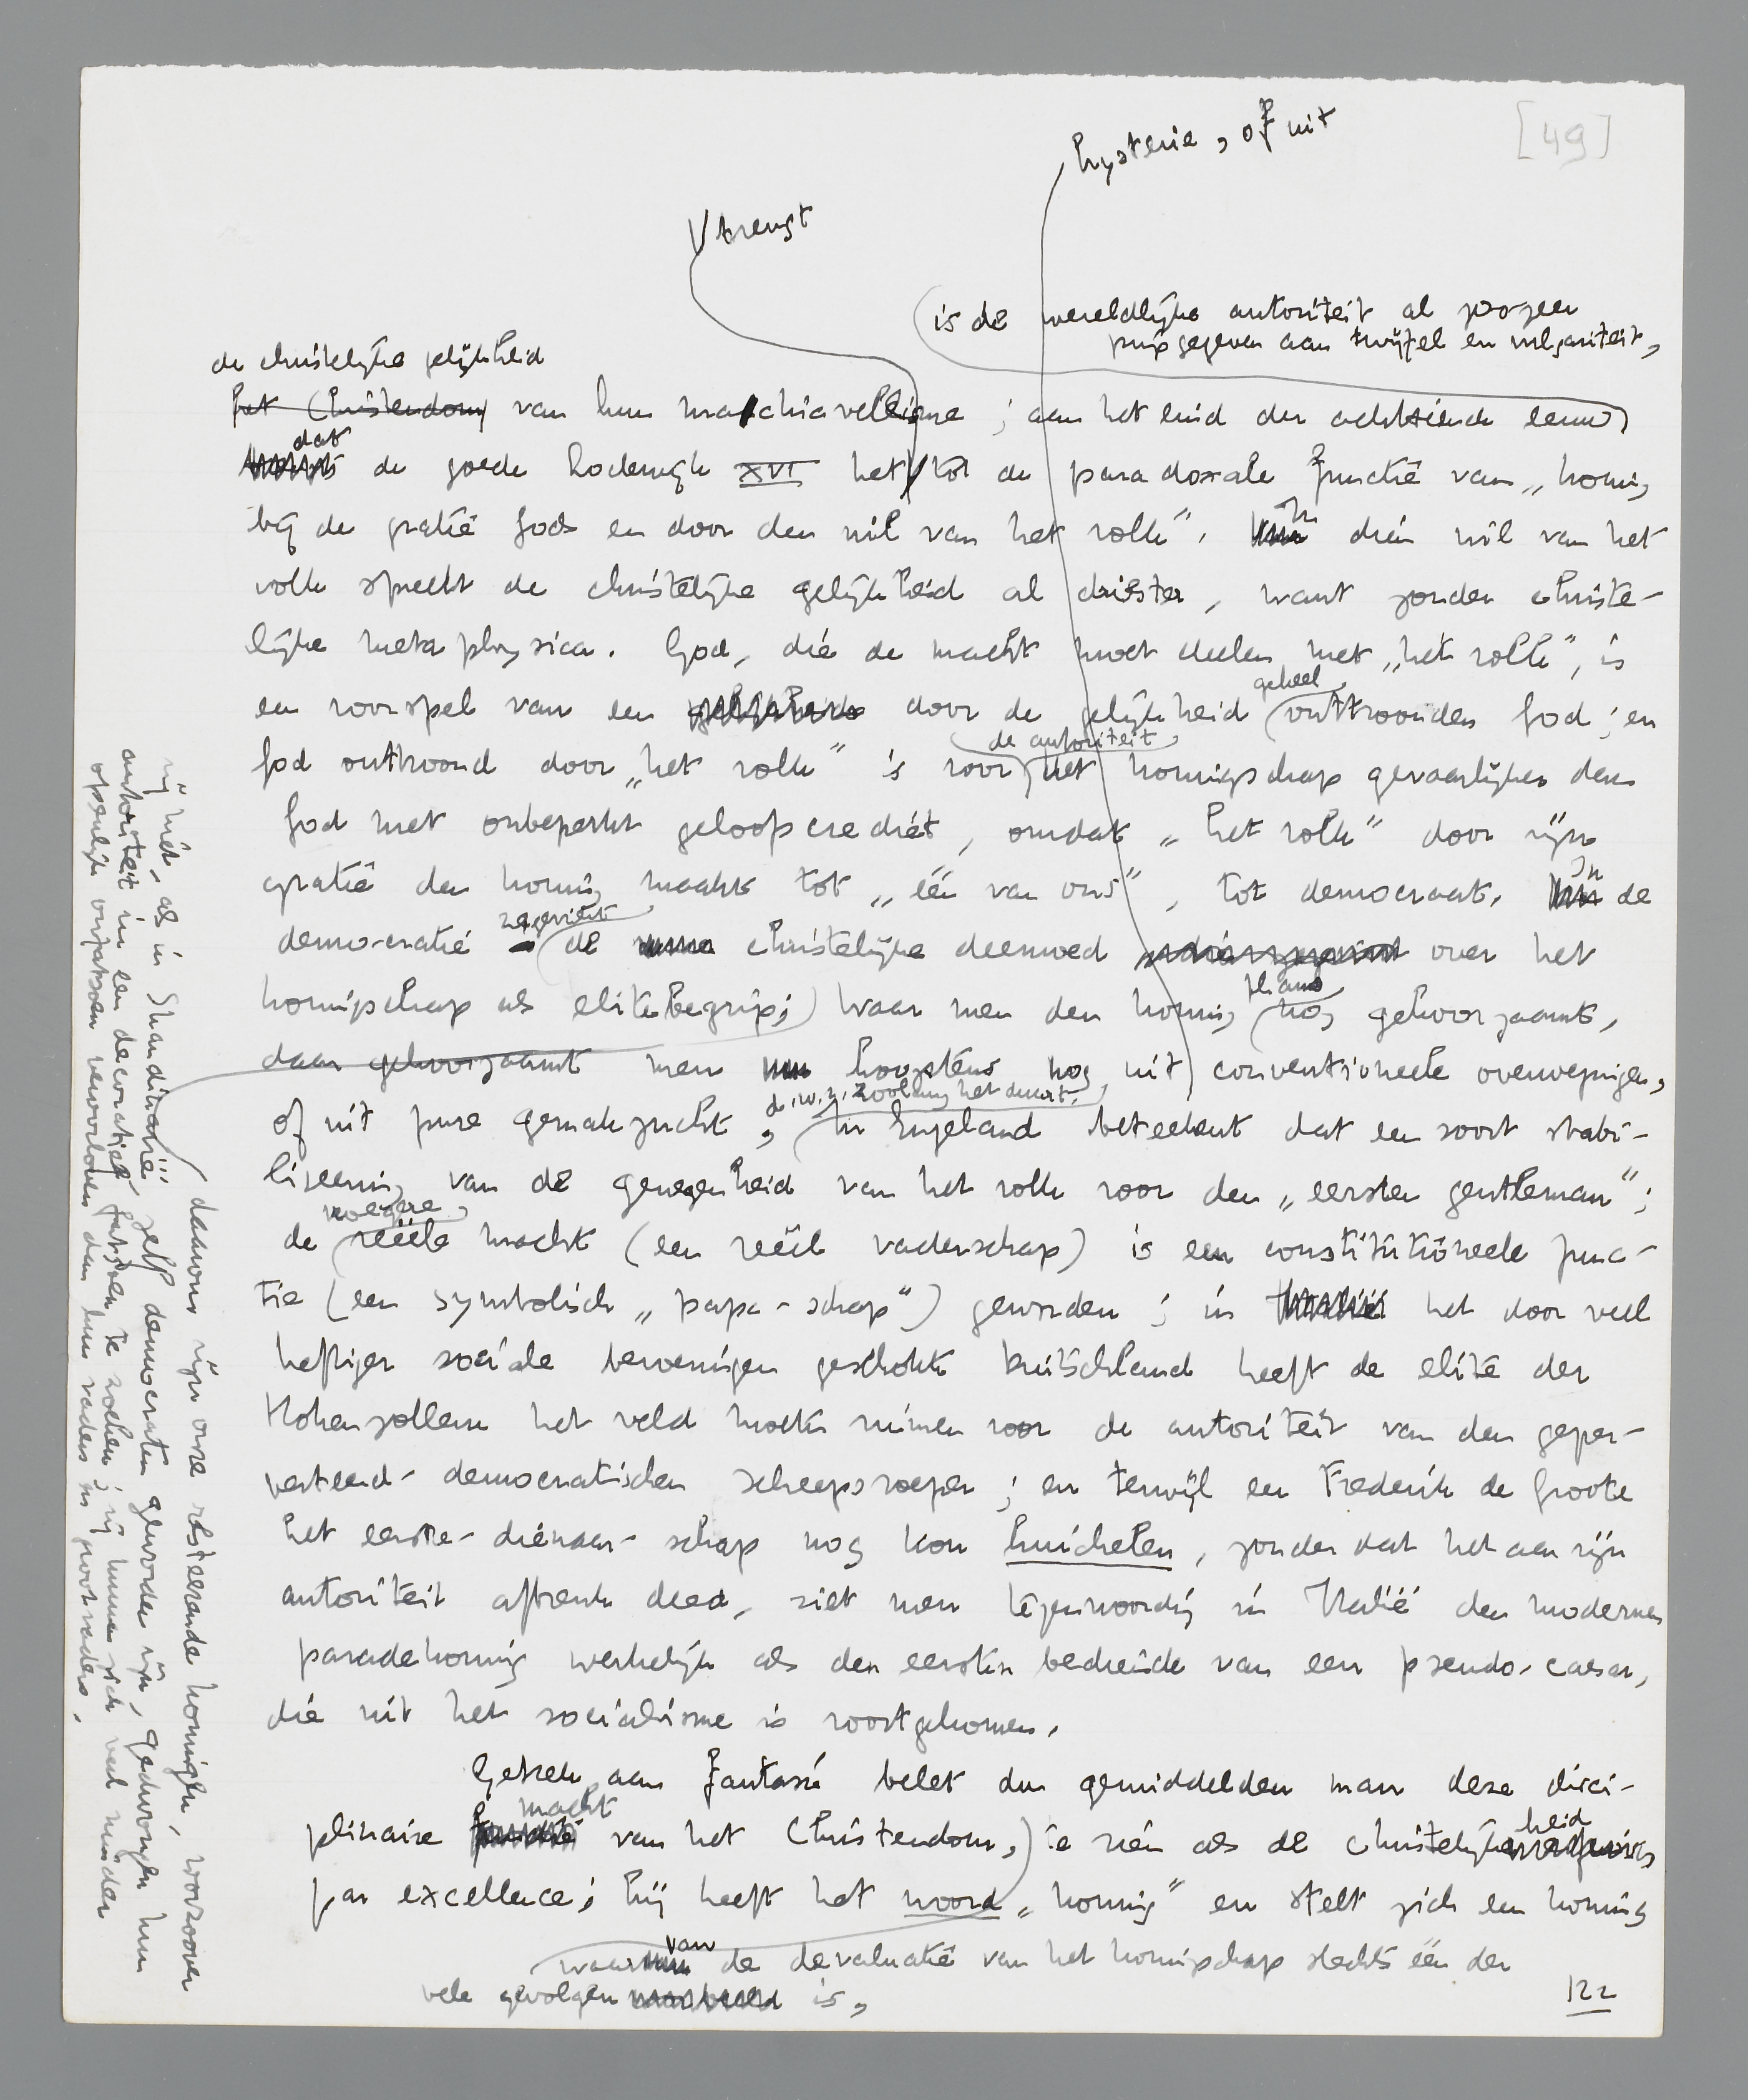 [49]
hysterie, of uit
brengt
is de wereldlijke autoriteit al zoozeer
prijsgegeven aan twijfel en vulgariteit,
de christelijke gelijkheid
het Christendom van hun machiavellisme; aan het eind der achttiende eeuw
dat
de goede Lodewijk XVI het tot de paradoxale functie van „koning
bij de gratie Gods en door den wil van het volk". In dien wil van het
volk spreekt de christelijke gelijkheid al driester, want zonder christe-
lijke metaphysica. God, die de macht moet deelen met „het volk", is
geheel
een voorspel van een door de gelijkheid onttroonden God; en
de autoriteit
God onttroond door „het volk" is voor het koningschap gevaarlijker dan
God met onbeperkt geloofscrediet, omdat „het volk" door zijn
gratie den koning maakt tot „één van ons", tot democraat. In de
zegeviert
democratie de christelijke deemoed over het
koningschap als elitebegrip; waar men den koning
thans
nog gehoorzaamt,
daar gehoorzaamt men hoogstens nog uit conventioneele overwegingen,
d.w.z. zoolang het duurt.
of uit pure gemakzucht, In Engeland beteekent dat een soort stabi-
liseering van de genegenheid van het volk voor den „eersten gentleman";
vroegere
de reëele macht (een reëel vaderschap) is een constitutioneele func-
tie (een symbolisch „papa-schap") geworden; in het door veel
heftiger sociale bewegingen geschokte Duitschland heeft de elite der
Hohenzollern het veld moeten ruimen voor de autoriteit van den geper-
verteerd-democratischen scheepsroeper; en terwijl een Frederik de Groote
het eerste-dienaar-schap nog kon huichelen, zonder dat het aan zijn
autoriteit afbreuk deed, ziet men tegenwoordig in Italië den modernen
paradekoning werkelijk als den eersten bediende van een pseudo-caesar,
die uit het socialisme is voortgekomen.
Gebrek aan fantasie belet den gemiddelden man deze disci-
macht
plinaire van het Christendom, te zien als de christelijkheid
par excellence; hij heeft het woord „koning" en stelt zich een koning
waarvan de devaluatie van het koningschap slechts één der
vele gevolgen is,
122
daarom zijn onze resteerende koningen, voorzoover
zij niet, als in Skandinavië, zelf democraten geworden zijn, gedwongen hun
autoriteit in een decoratief fatsoen te zoeken; zij kunnen zich veel minder
openlijk uitspatsen veroorloven dan hun vaders en grootvaders.